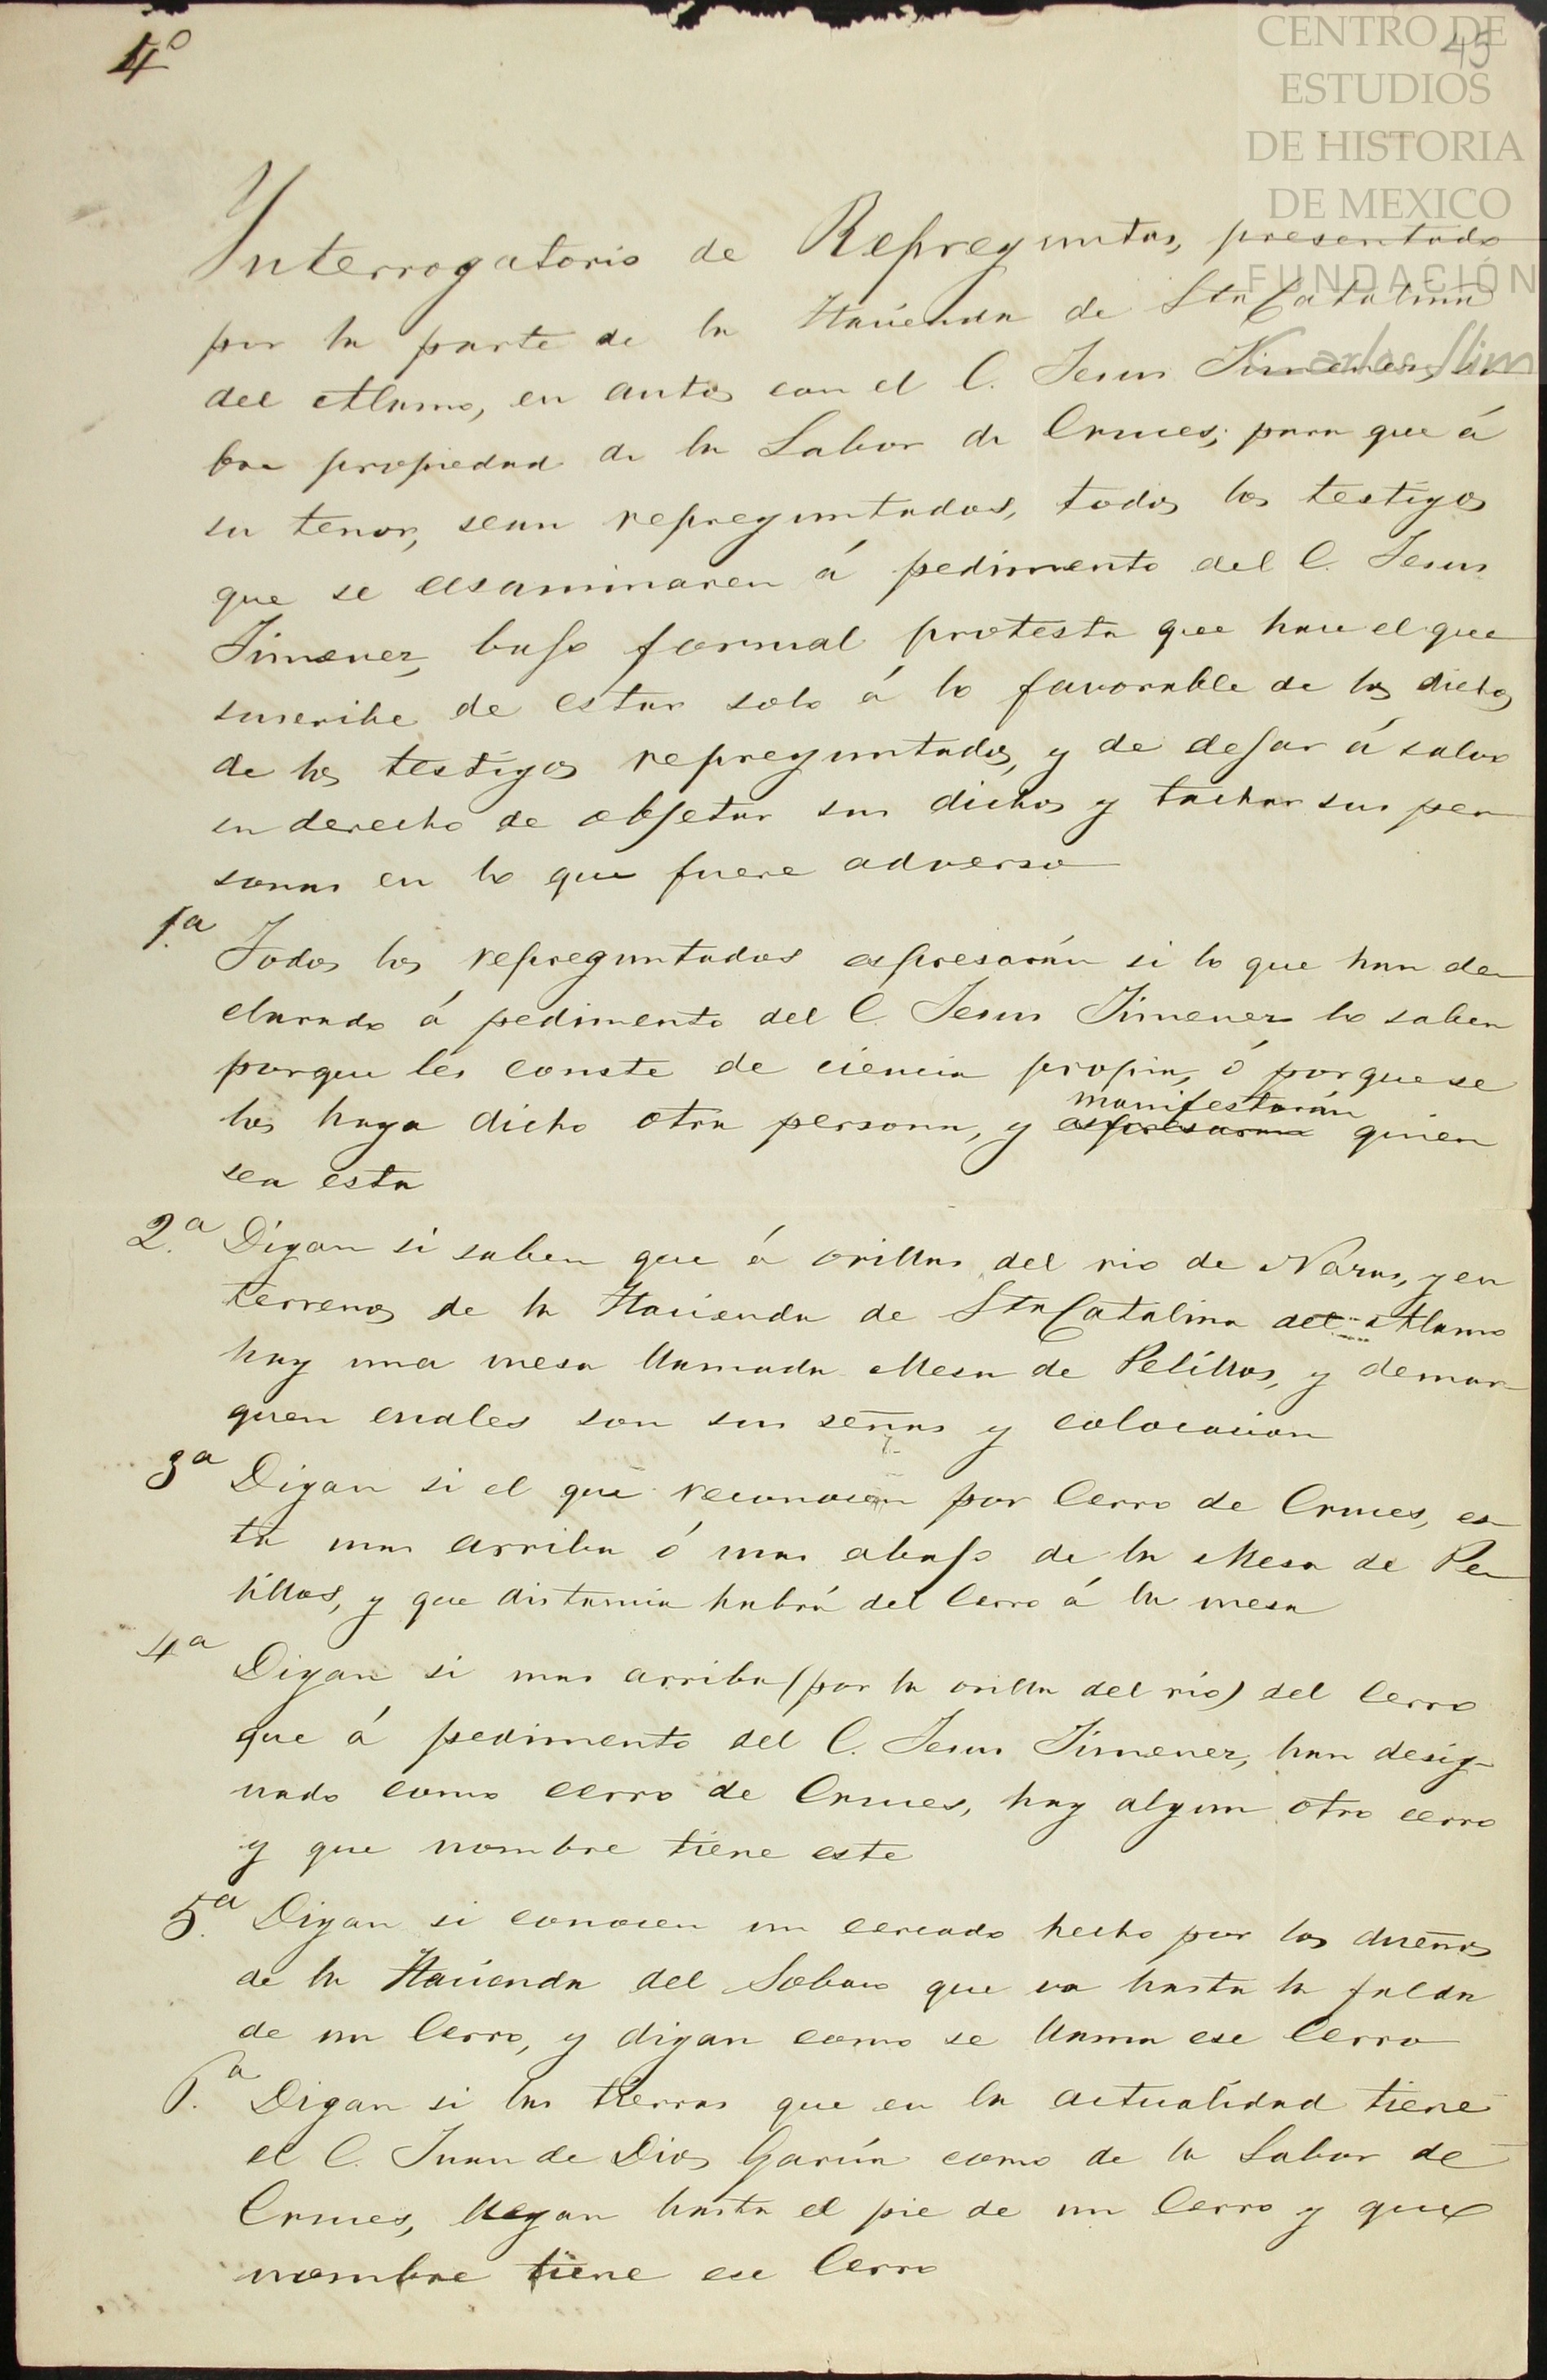 4º
45
CENTRO DE
ESTUDIOS
DE HISTORIA
DE MEXICO
FUNDACIÓN
Carlos Slim
Ynterrogatorio de Repreguntas, presentado
por la parte de la Hacienda de Sta Catalina
del Alamo, en autos con el C. Jesus Jimenez, so
bre propiedad de la Labor de Cruces; para que á
su tenor, sean repreguntados, todos los testigos
que se ecsaminaren á pedimento del C. Jesus
Jimenez, bajo formal protesta que hace el que
suscribe de estar solo á lo favorable de los dichos
de los testigos repreguntados, y de dejar á salvo
su derecho de objetar sus dichos y tachar sus per
sonas en lo que fuere adverso
1.ª Todos los repreguntados espresarán si lo que han de
clarado á pedimento del C. Jesus Jimenez lo saben
porque les conste de ciencia propia, ó porque se
los haya dicho otra persona, y espresaran manifestarán quien
sea esta
2.ª Digan si saben que á orillas del rio de Nazas, y en
terrenos de la Hacienda de Sta Catalina del Alamo
hay una mesa llamada Mesa de Pelillos, y demar
quen cuales son sus señas y colocacion
3ª Digan si el que reconocen por Cerro de Cruces, es
tá mas arriba ó mas abajo de la Mesa de Pe
lillos, y que distancia habrá del Cerro á la mesa
4ª Digan si mas arriba (por la orilla del rio) del Cerro
que á pedimento del C. Jesus Jimenez, han desig-
nado como cerro de Cruces, hay algun otro cerro
y que nombre tiene este
5.ª Digan si conocen un cercado hecho por los dueños
de la Hacienda del Sobaco que va hasta la falda
de un Cerro, y digan como se llama ese Cerro
6.ª Digan si las tierras que en la actualidad tiene
el C. Juan de Dios Garcia como de la Labor de
Cruces, llegan hasta el pie de un Cerro y que
nombre tiene ese Cerro